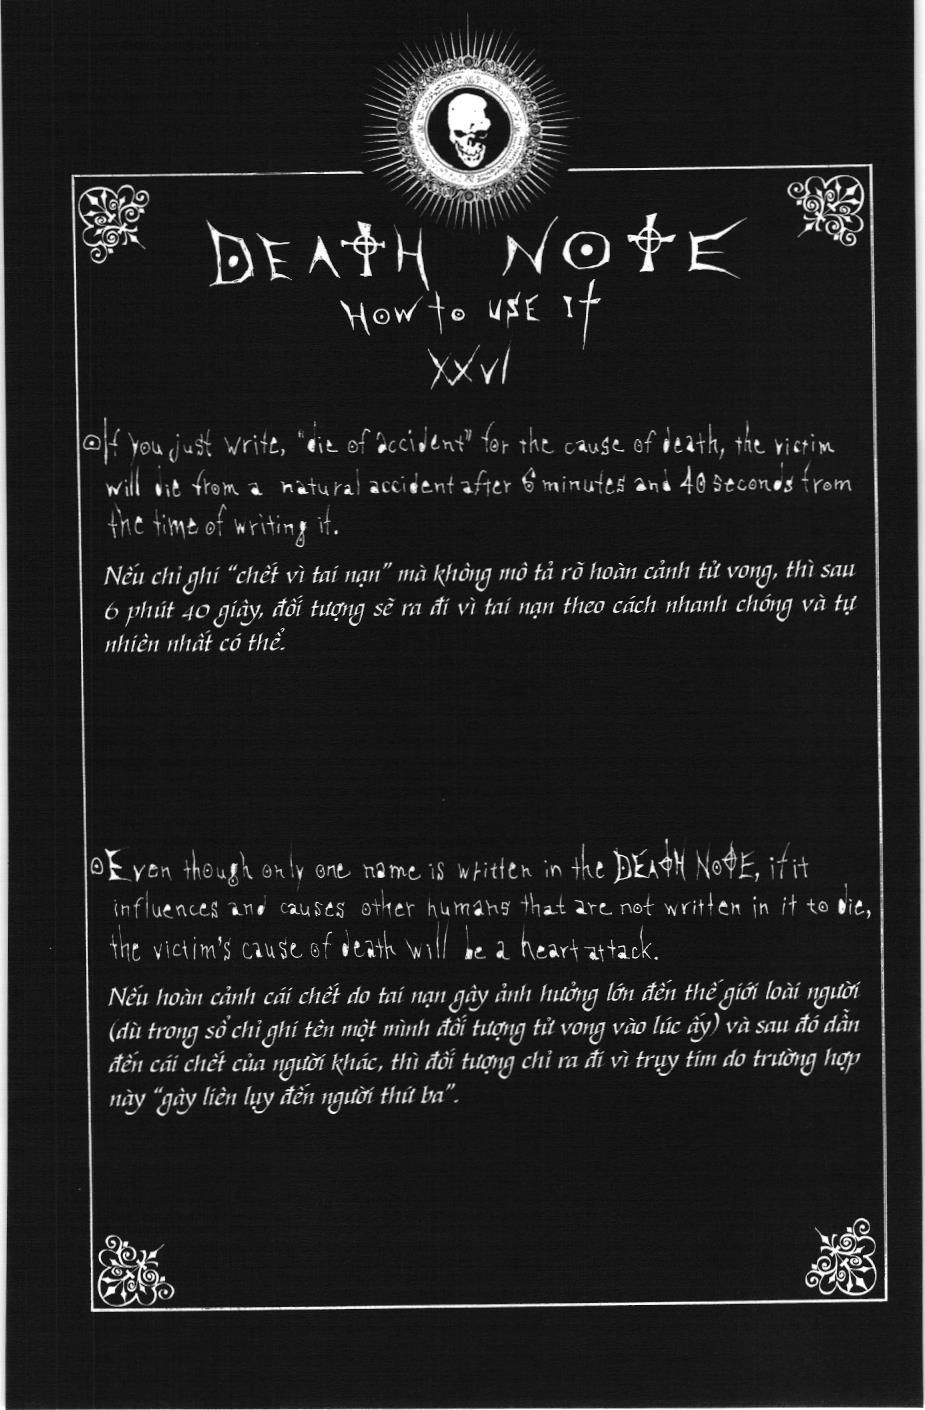 DEATH NOTE
How to use it
XXVI
If you just write, "die of accident" for the cause of death, the victim
will die from a natural accident after 6 minutes and 40 seconds from
the time of writing it.
Nếu chỉ ghi “chết vì tai nạn” mà không mô tả rõ hoàn cảnh tử vong, thì sau
6 phút 40 giây, đối tượng sẽ ra đi vì tai nạn theo cách nhanh chóng và tự
nhiên nhất có thể.
Even though only one name is written in the DEATH NOTE, if it
influences and causes other humans that are not written in it to die,
the victim's cause of death will be a heart attack.
Nếu hoàn cảnh cái chết do tai nạn gây ảnh hưởng lớn đến thế giới loài người
(dù trong sổ chỉ ghi tên một mình đối tượng tử vong vào lúc ấy) và sau đó dẫn
đến cái chết của người khác, thì đối tượng chỉ ra đi vì trụy tim do trường hợp
này “gây liên lụy đến người thứ ba”.